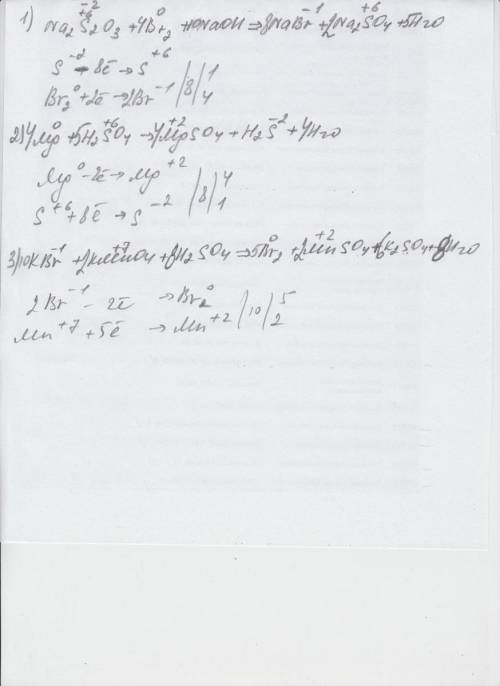 1) Na₂S₂⁺²₋₂O₃ + 4Br₂⁰ + 10NaOH → 8NaBr⁻¹ + 2Na₂S⁺⁶O₄ + 5H₂O
S⁻² - 8ē → S⁺⁶ / 8 / 1
Br₂⁰ + 2ē → 2Br⁻¹ / 4
2) 4Mg⁰ + 5H₂S⁺⁶O₄ → 4Mg⁺²SO₄ + H₂S⁻² + 4H₂O
Mg⁰ - 2ē → Mg⁺² / 8 / 4
S⁺⁶ + 8ē → S⁻² / 1
3) 10KBr⁻¹ + 2KMn⁺⁷O₄ + 8H₂SO₄ → 5Br₂⁰ + 2Mn⁺²SO₄ + 6K₂SO₄ + 8H₂O
2Br⁻¹ - 2ē → Br₂⁰ / 10 / 5
Mn⁺⁷ + 5ē → Mn⁺² / 2